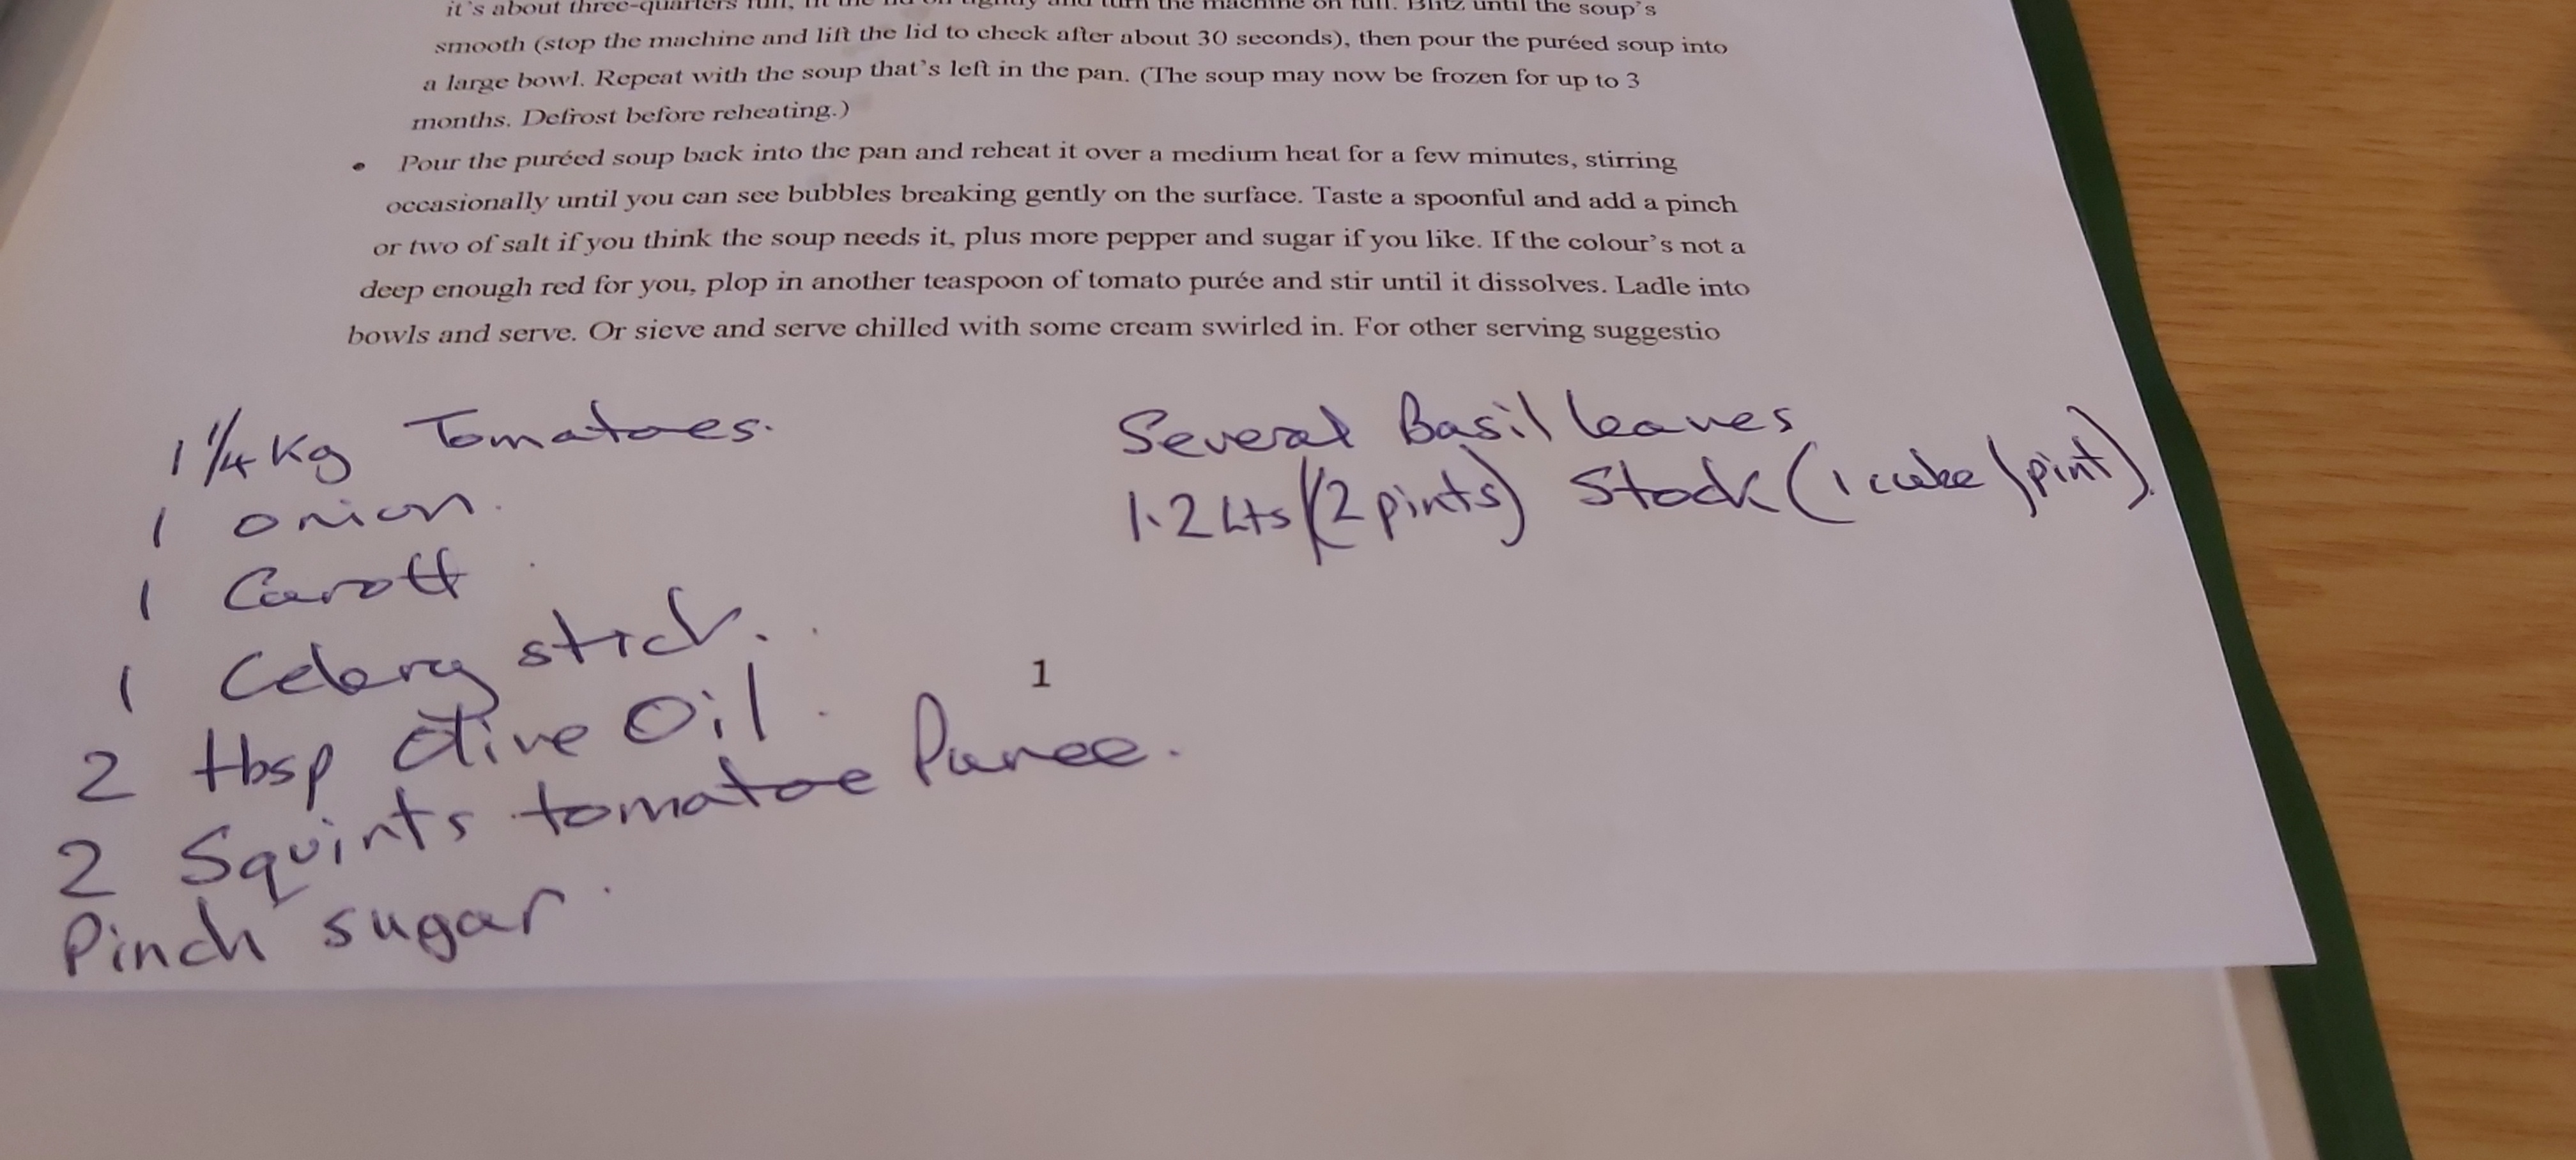 it's about three-quarters full, fit the lid on tightly and turn the machine on full. Blitz until the soup's
smooth (stop the machine and lift the lid to check after about 30 seconds), then pour the puréed soup into
a large bowl. Repeat with the soup that's left in the pan. (The soup may now be frozen for up to 3
months. Defrost before reheating.)
• Pour the puréed soup back into the pan and reheat it over a medium heat for a few minutes, stirring
occasionally until you can see bubbles breaking gently on the surface. Taste a spoonful and add a pinch
or two of salt if you think the soup needs it, plus more pepper and sugar if you like. If the colour's not a
deep enough red for you, plop in another teaspoon of tomato purée and stir until it dissolves. Ladle into
bowls and serve. Or sieve and serve chilled with some cream swirled in. For other serving suggestio
1 1/4 Kg Tomatoes.
1 onion.
1 Carott
1 Celery stick.
2 tbsp Olive Oil.
2 Squirts tomatoe Puree.
Pinch sugar.
Several Basil leaves
1.2 Lts (2 pints) Stock (1 cube / pint).
1